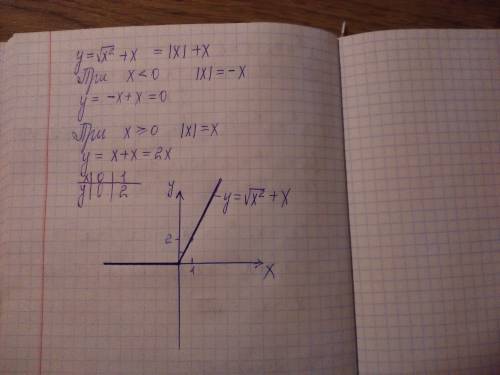 y = √x² + x = |x| + x
При x < 0 |x| = -x
y = -x + x = 0
При x ≥ 0 |x| = x
y = x + x = 2x
x | 0 | 1
y | 0 | 2
y
y = √x² + x
2
1
x